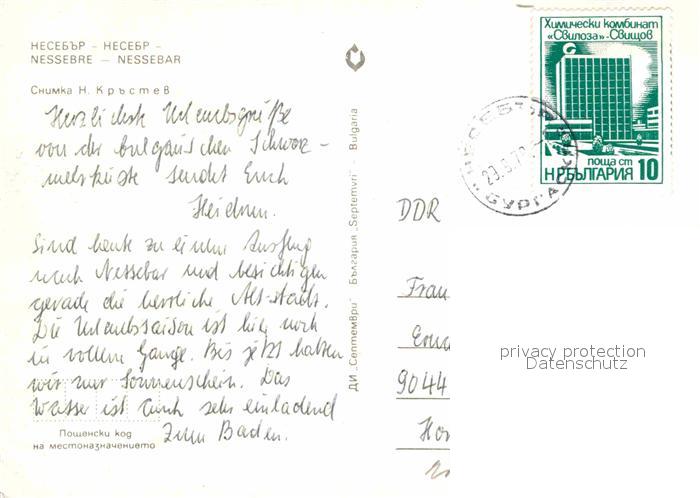 НЕСЕБЪР – НЕСЕБР –
NESSEBRE – NESSEBAR
Снимка Н. Кръстев
Herzliche Urlaubsgrüße
von der bulgarischen Schwarz-
meerküste sendet Euch
Sind heute zu einem Ausflug
nach Nessebar und besichtigen
gerade die herrliche Alt-stadt.
Die Urlaubssaison ist hier noch
in vollem Gange. Bis jetzt hatten
wir nur Sonnenschein. Das
Wasser ist auch sehr einladend
zum Baden.
Пощенски код
на местоназначението
ДИ „Септември" България „Septemvri" Bulgaria
Химически комбинат
«Свилоза»-Свищов
поща ст
НР БЪЛГАРИЯ 10
НЕСЕБЪР
БУРГАСКИ
DDR
Frau
9044
privacy protection
Datenschutz